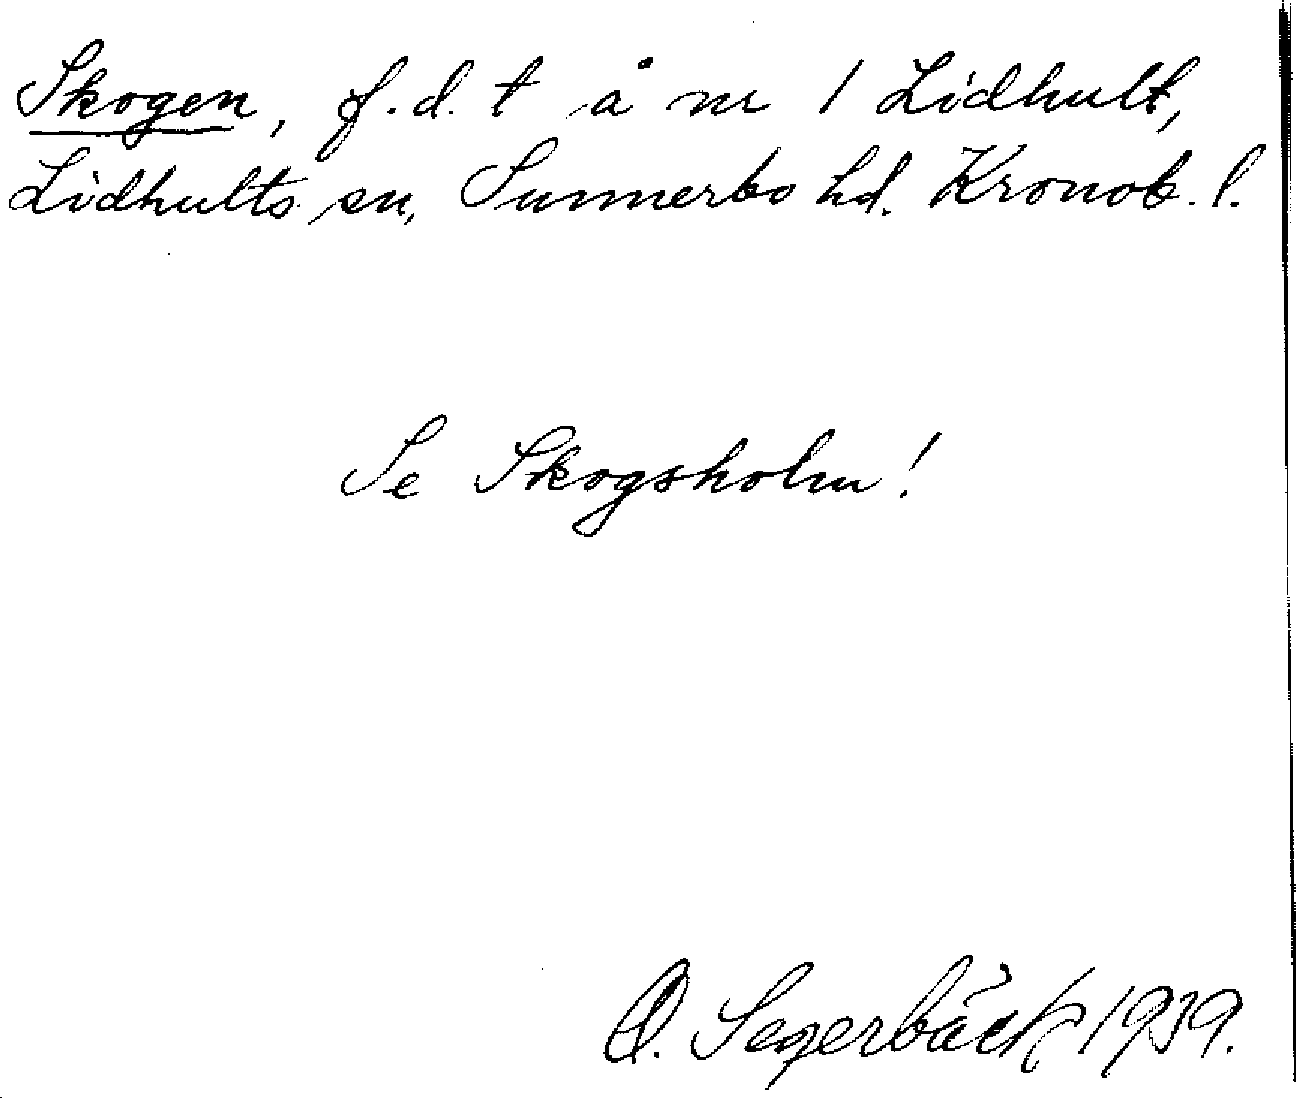 Skogen, f.d. t å nr 1 Lidhult,
Lidhults sn, Sunnerbo hd. Kronob. l.
Se Skogsholm!
O. Segerbäck 1939.